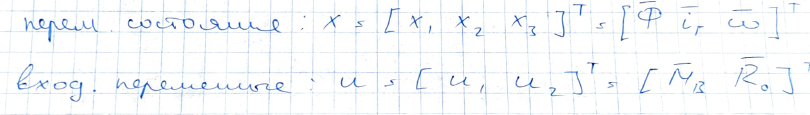 перем. состояние : x = [ x₁ x₂ x₃ ]ᵀ = [ Φ̅ i̅ᵣ ω̅ ]ᵀ
вход. переменные : u = [ u₁ u₂ ]ᵀ = [ M̅в R̅₀ ]ᵀ